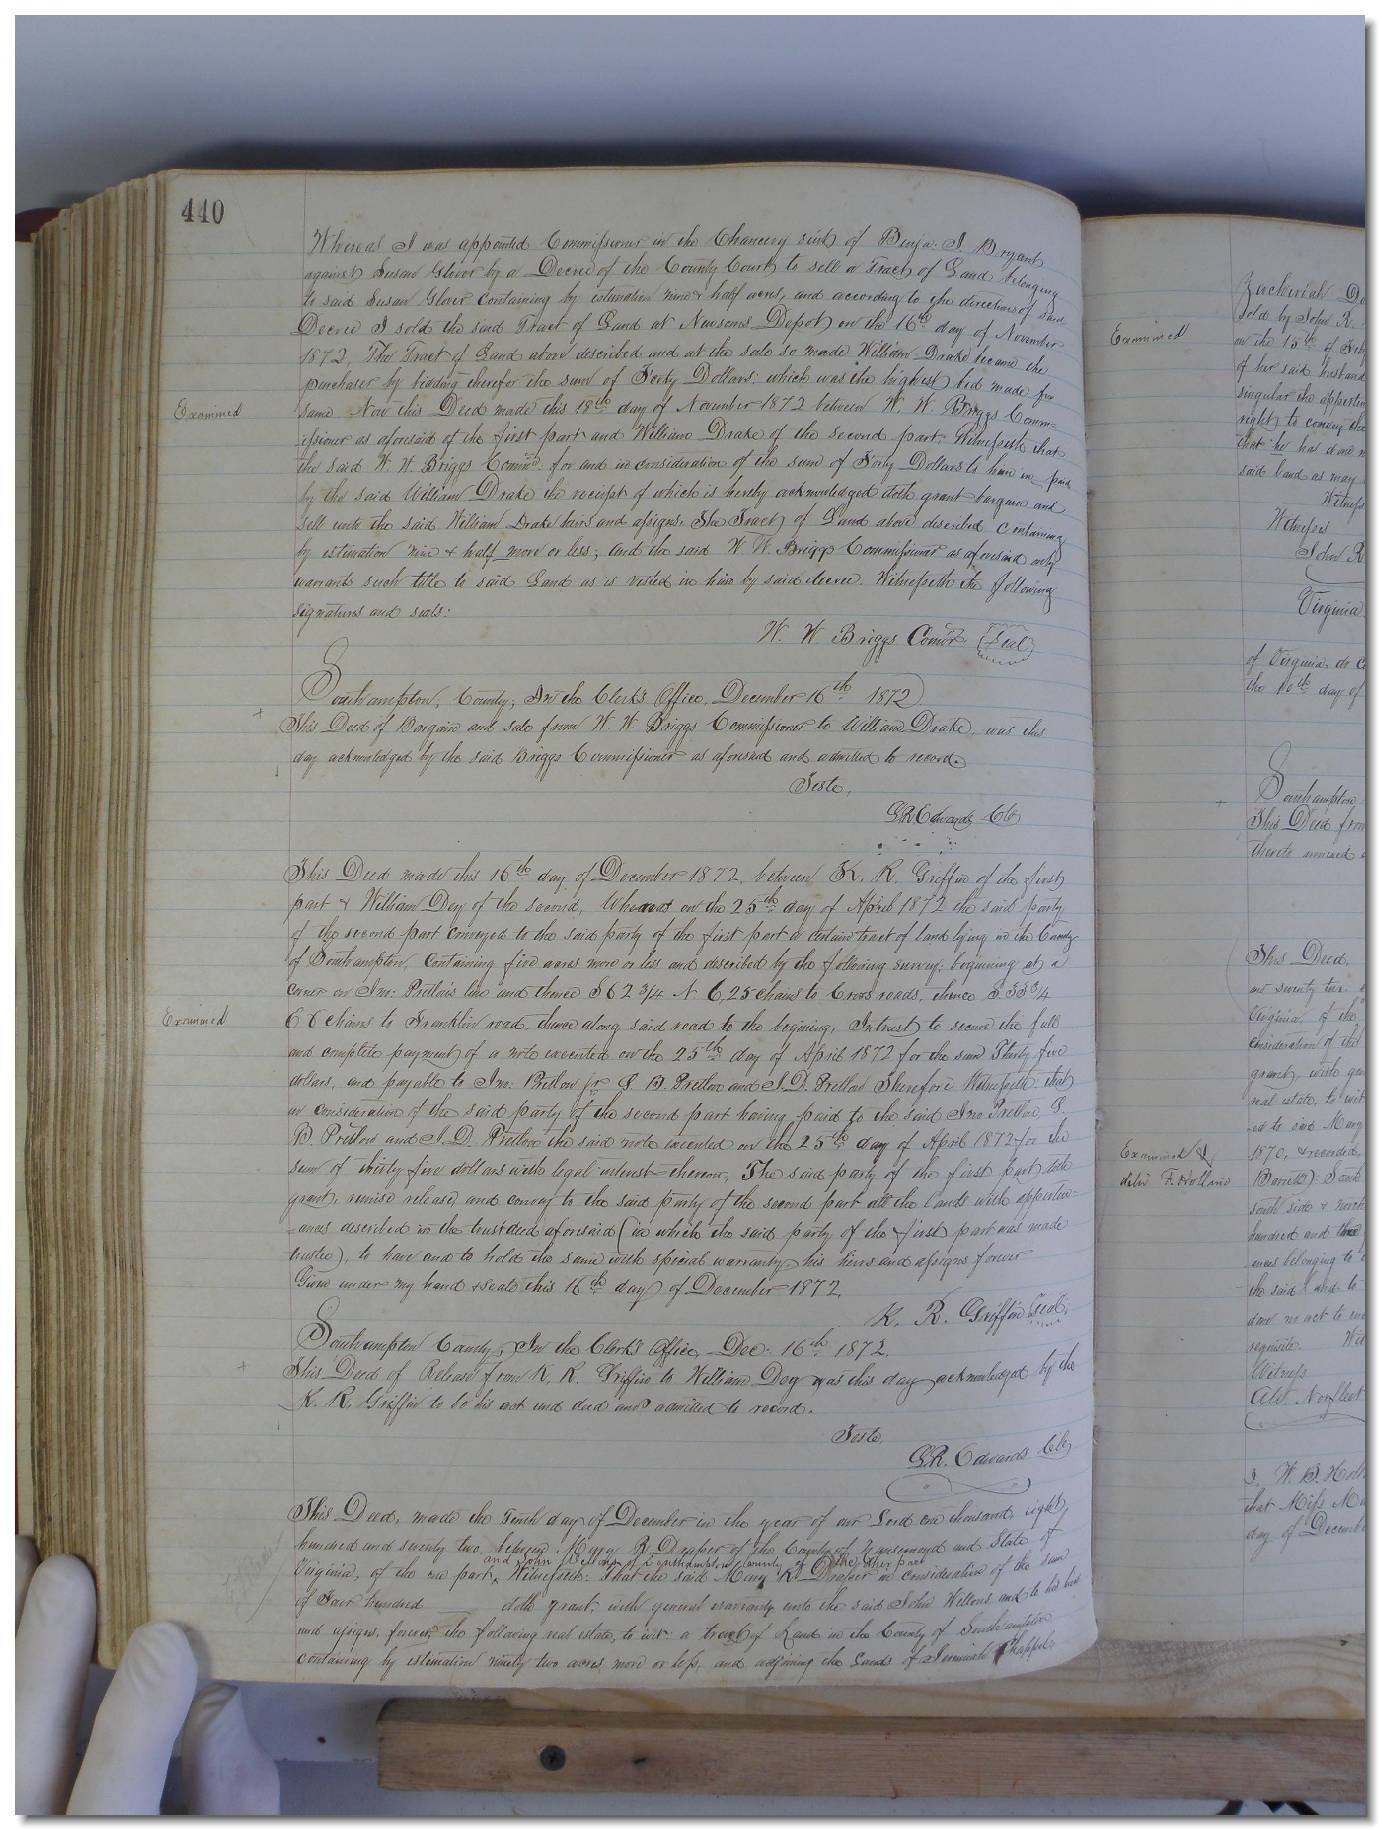 440
Whereas I was appointed Commissioner in the Chancery suit of Benja: I. Bryant
against Susan Glover by a Decree of the County Court to sell a Tract of Land belonging
to said Susan Glover containing by estimation nine & half acres, and according to the direction of said
Decree I sold the said Tract of Land at Newsoms Depot on the 16th day of November
1872, The Tract of Land above described and at the sale so made William Drake became the
purchaser by bidding therefor the sum of Forty Dollars: which was the highest bid made for
Examined
same Now this Deed made this 18th day of November 1872 between W. W. Briggs Comm=
issioner as aforesaid of the first part and William Drake of the second part: Witnesseth that
the said W. W. Briggs Commr. for and in consideration of the sum of Forty Dollars to him in paid
by the said William Drake the receipt of which is hereby acknowledged doth grant bargain and
sell unto the said William Drake heirs and assigns, The Tract of Land above described containing
by estimation nine & half more or less; and the said W. W. Briggs Commissioner as aforesaid only
warrants such title to said Land as is vested in him by said decree. Witnesseth the following
signatures and seals:
W. W Briggs Comr. Seal
Southampton, County, In the Clerk's Office, December 16th 1872
This Deed of Bargain and Sale from W. W Briggs Commissioner to William Drake, was this
day acknowledged by the said Briggs Commissioner as aforesaid and admitted to record.
Teste,
L.R. Edwards Clk
This Deed made this 16th day of December 1872, between K. R. Griffin of the first
part & William Day of the second, Whereas on the 25th day of April 1872 the said party
of the second part conveyed to the said party of the first part a certain tract of land lying in the County
of Southampton, Containing five acres more or less and described by the following survey; beginning at a
corner on Jno: Pretlow's line and thence S 62 3/4 N 6,25 chains to Cross roads, thence S 33 3/4
Examined
E 8 chains to Franklin road thence along said road to the begining, In trust to secure the full
and complete payment of a note executed on the 25th day of April 1872 for the sum Thirty five
dollars, and payable to Jno: Pretlow jr. G B. Pretlow and J. D. Pretlow Therefore Witnesseth: that
in consideration of the said party of the second part having paid to the said Jno Pretlow, G.
B. Pretlow and J. D. Pretlow the said note executed on the 25th day of April 1872 for the
sum of thirty five dollars with legal interest thereon, The said party of the first part doth
grant, remise release, and convey to the said party of the second part all the lands with appurten=
=ances described in the trust deed aforsaid (in which the said party of the first part was made
trustee), to have and to hold the same with special warranty, his heirs and assigns forever
Given under my hand & seal this 16th day of December 1872.
K. R. Griffin Seal.
Southampton County, In the Clerk's Office, Dec. 16th 1872.
This Deed of Release from K. R. Griffin to William Day was this day acknowledged by the
K. R. Griffin to be his act and deed and admitted to record.
Teste,
L.R. Edwards Clk
This Deed, made the Tenth day of December in the year of our Lord one thousand, eight
hundred and seventy two, between Mary R. Draper of the County of Nansemond and State of
and John Wellons of Southampton County of the other part
Virginia, of the one part, Witnesseth: That the said Mary R. Draper in consideration of the sum
of Four hundred doth grant, with general warranty unto the said John Wellons and to his heirs
and assigns, forever, the following real estate, to wit: a tract of Land in the County of Southampton
containing by estimation ninety two acres more or less, and adjoining the Lands of Jeremiah Chappel
Examined
Zachariah
Sold by John R.
on the 15th of
of her said husband
singular the
right to convey the
that he has done
said land as may
Witness
Witnesses
John R
Virginia
of Virginia, do
the 10th day of
Southampton
This Deed from
thereto annexed
This Deed,
Virginia, of the
consideration of the
grant, with
real estate, to wit
Examined &
deliv F. Holland
1870, & recorded,
south side & north
hundred and three
ances belonging to
the said and to
done no act to
requisite. Wit
Witness
I, W. B.
that Miss
day of December